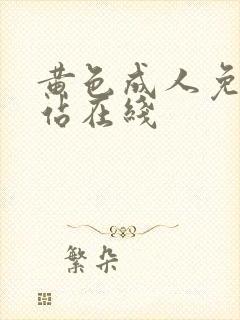 黄色成人免
站在线
繁朵